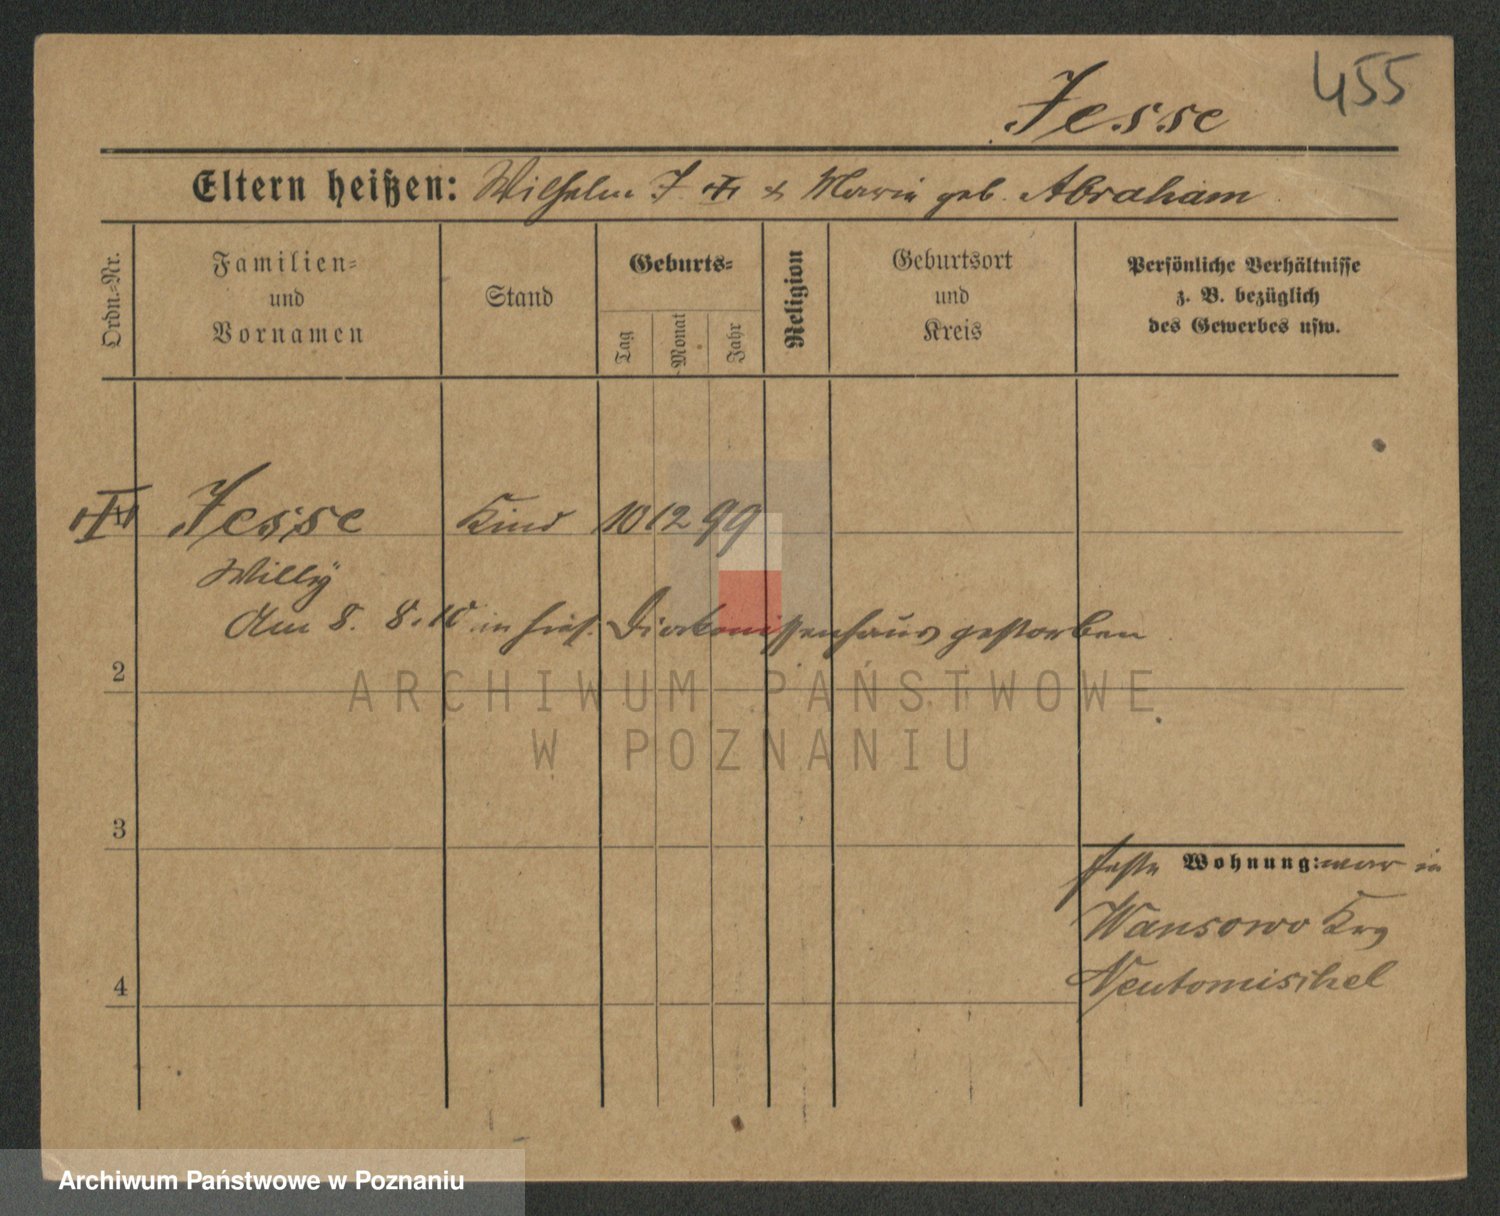 455
Jesse
Eltern heißen: Wilhelm J. & Marie geb. Abraham
Ordn.=Nr.
Familien=
und
Vornamen
Stand
Geburts=
Tag
Monat
Jahr
Religion
Geburtsort
und
Kreis
Persönliche Verhältnisse
z. B. bezüglich
des Gewerbes usw.
Jesse Kind 10 12 99
Willy
Am 8. 8. 10 in hies. Diakonissenhaus gestorben
2
ARCHIWUM PAŃSTWOWE
W POZNANIU
3
feste Wohnung: war in
Wansowo Krs
Neutomischel
4
Archiwum Państwowe w Poznaniu